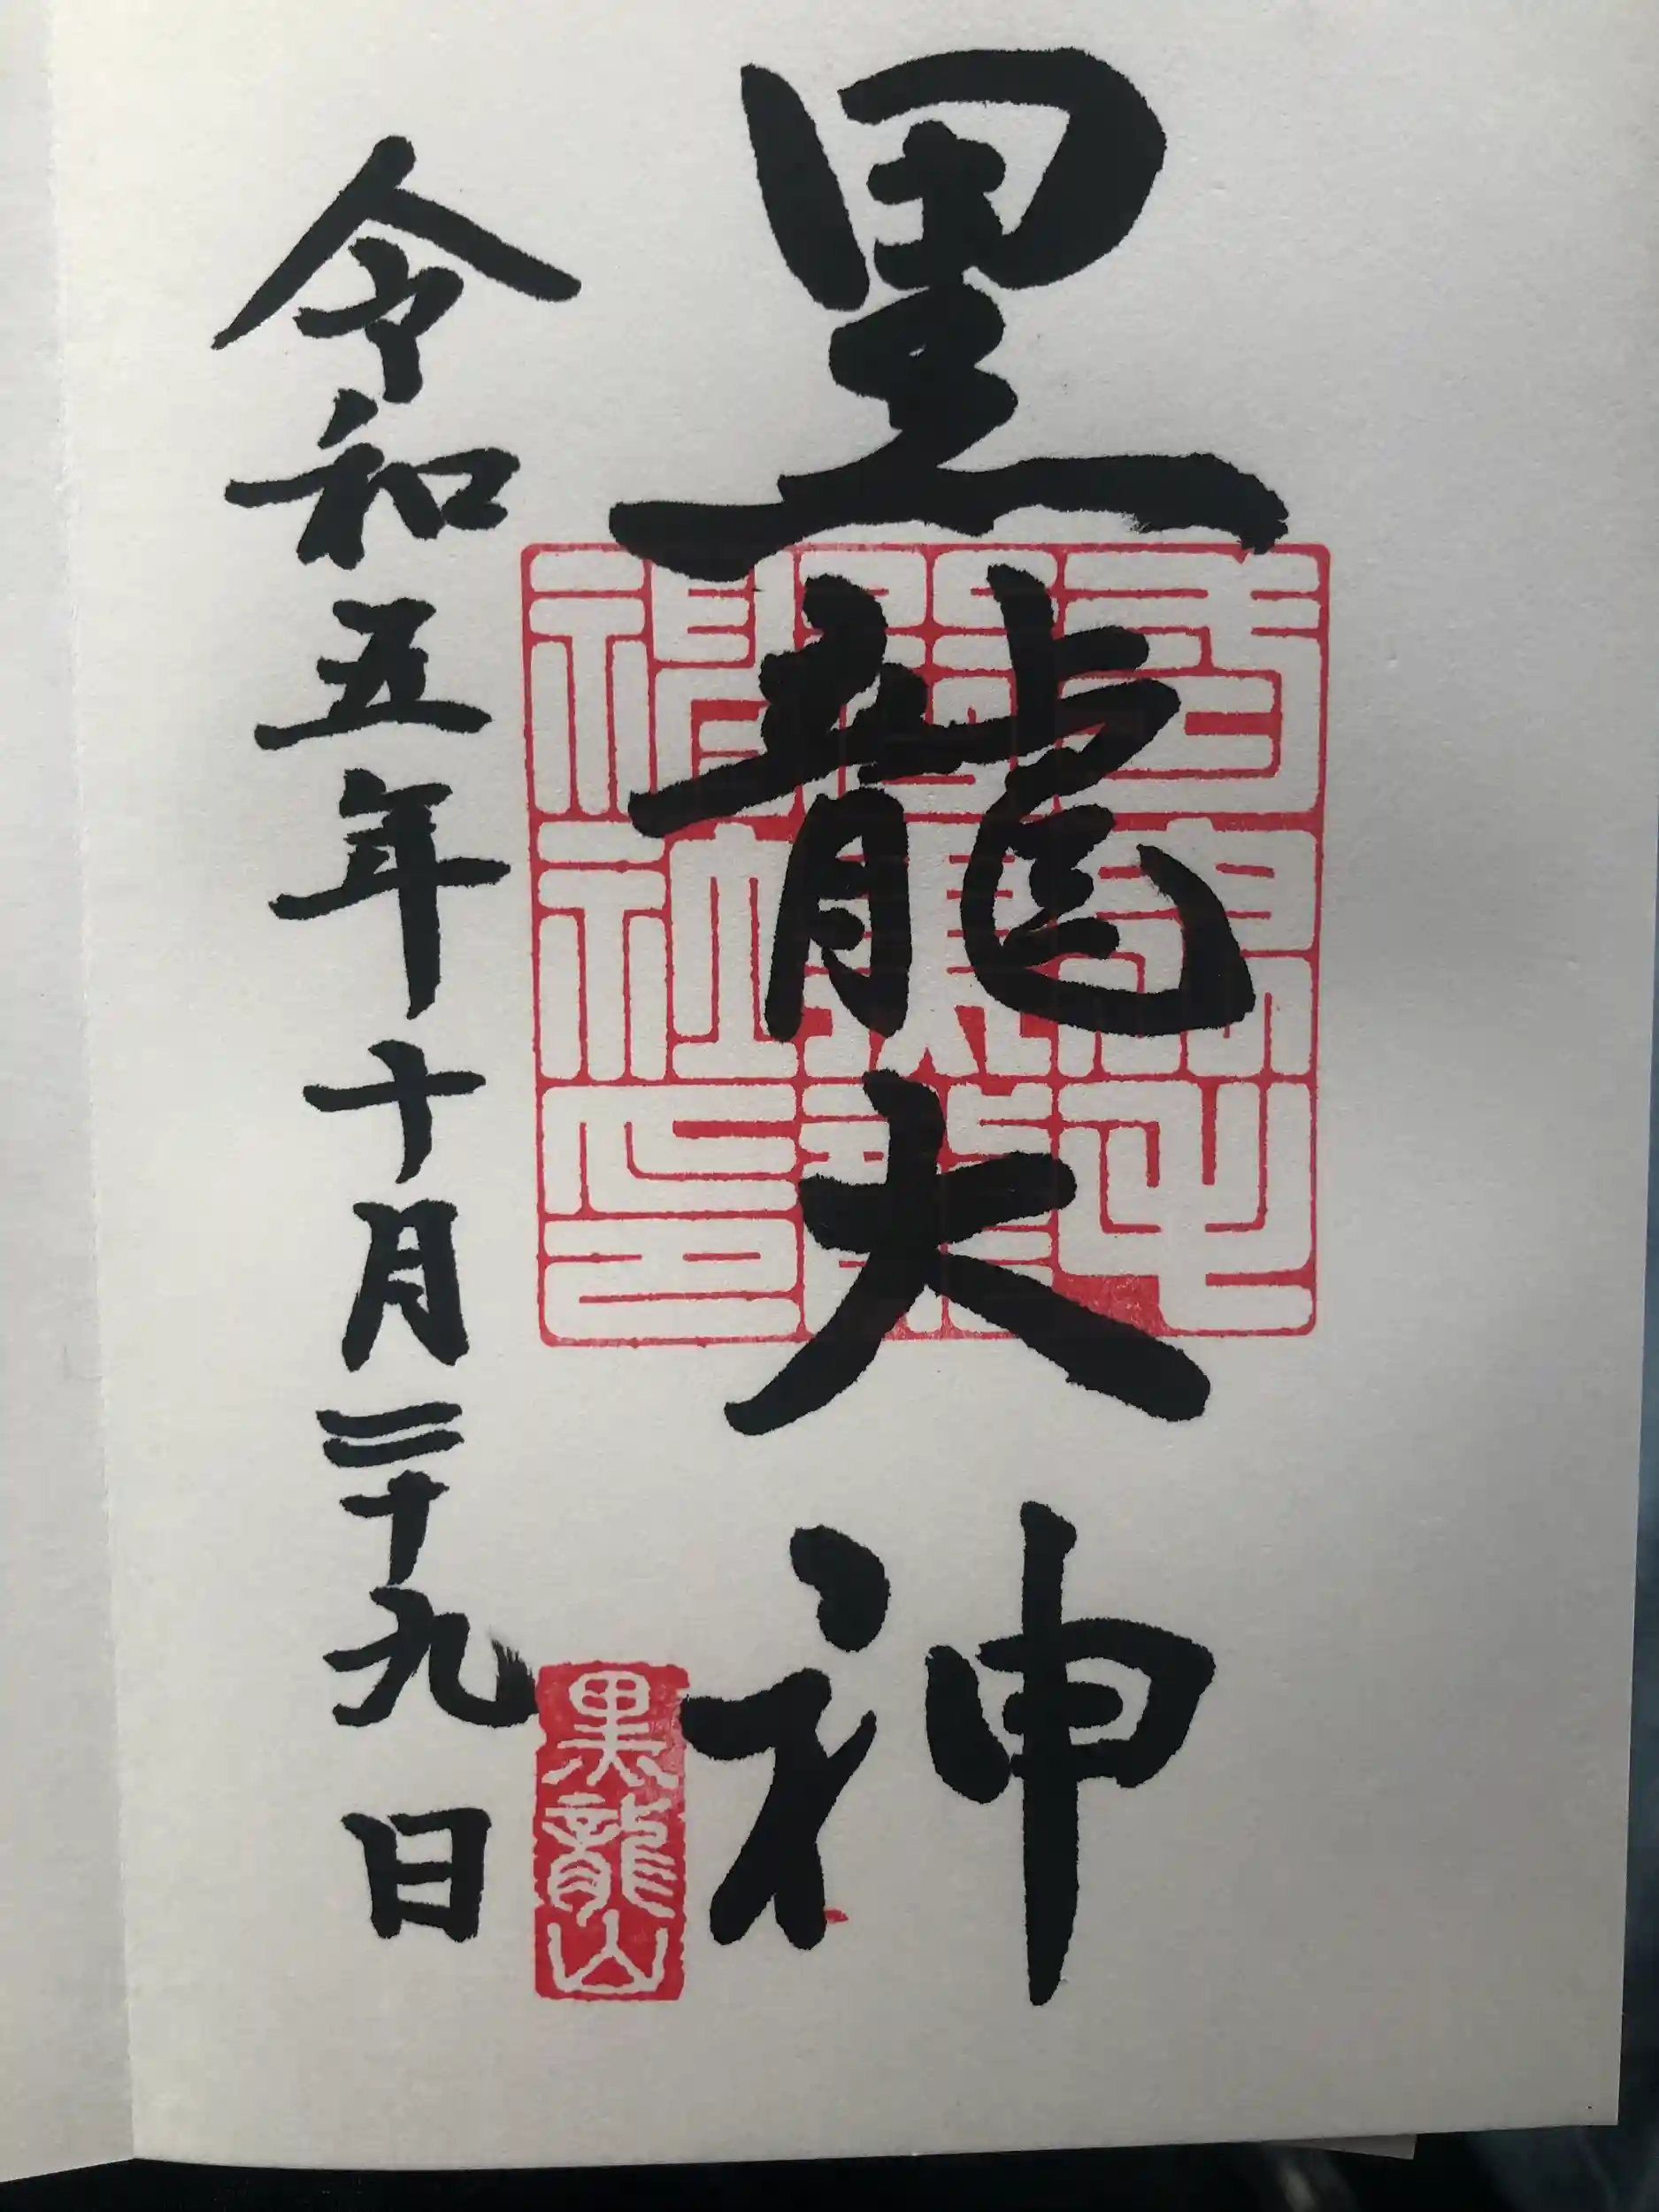 黒龍大神
黒龍山
令和五年十月二十九日